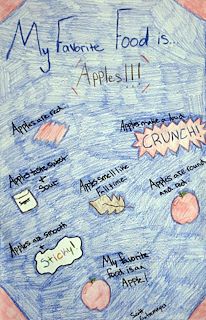 My Favorite Food is...
Apples!!!
Apples are red
Apples make a loud
CRUNCH!
Apples taste sweet
+
sour
Apples smell like
Fall time
Apples are round
and red
Apples are smooth
+
Sticky!
My favorite
Food is an
Apple!